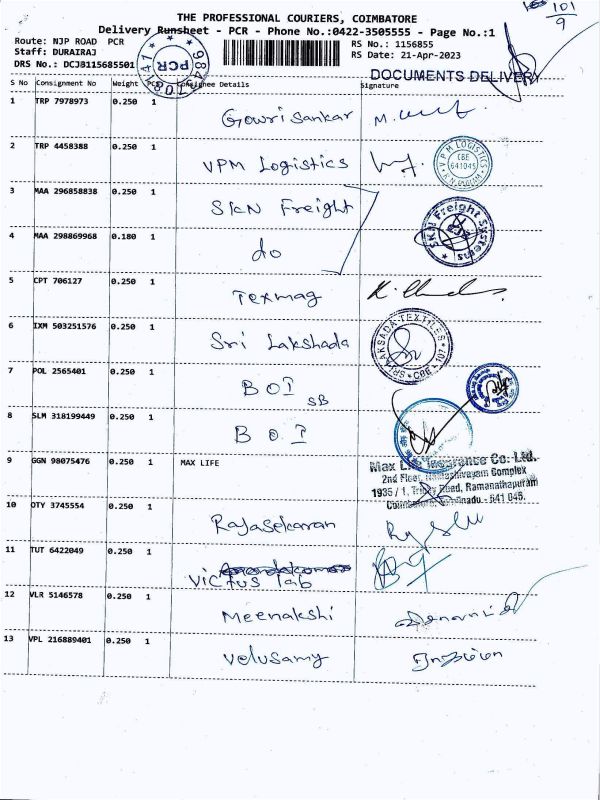 101
9
THE PROFESSIONAL COURIERS, COIMBATORE
Delivery Runsheet - PCR - Phone No.:0422-3505555 - Page No.:1
Route: NJP ROAD PCR
RS No.: 1156855
Staff: DURAIRAJ
RS Date: 21-Apr-2023
DRS No.: DCJB115685501
PCR
DOCUMENTS DELIVERY
S No Consignment No Weight Consignee Details Signature
1 TRP 7978973 0.250 1 Gowri Sankar
2 TRP 4458388 0.250 1 VPM Logistics
VPM LOGISTICS
CBE
641045
3 MAA 296858838 0.250 1 SKN Freight
SKN Freight Systems
4 MAA 298869968 0.180 1 do
5 CPT 706127 0.250 1 Texmag
6 IXM 503251576 0.250 1 Sri Lakshada
SRI LAKSADA TEXTILES
CBE
7 POL 2565401 0.250 1 BOI SB
8 SLM 318199449 0.250 1 BOI
9 GGN 98075476 0.250 1 MAX LIFE
Max Life Insurance Co. Ltd.
2nd Floor, Complex
1935 / 1, Trichy Road, Ramanathapuram
Coimbatore, Tamilnadu - 641 045.
10 OTY 3745554 0.250 1 Rajasekaran
11 TUT 6422049 0.250 1 Victus lab
12 VLR 5146578 0.250 1 Meenakshi
13 VPL 216889401 0.250 1 Velusamy